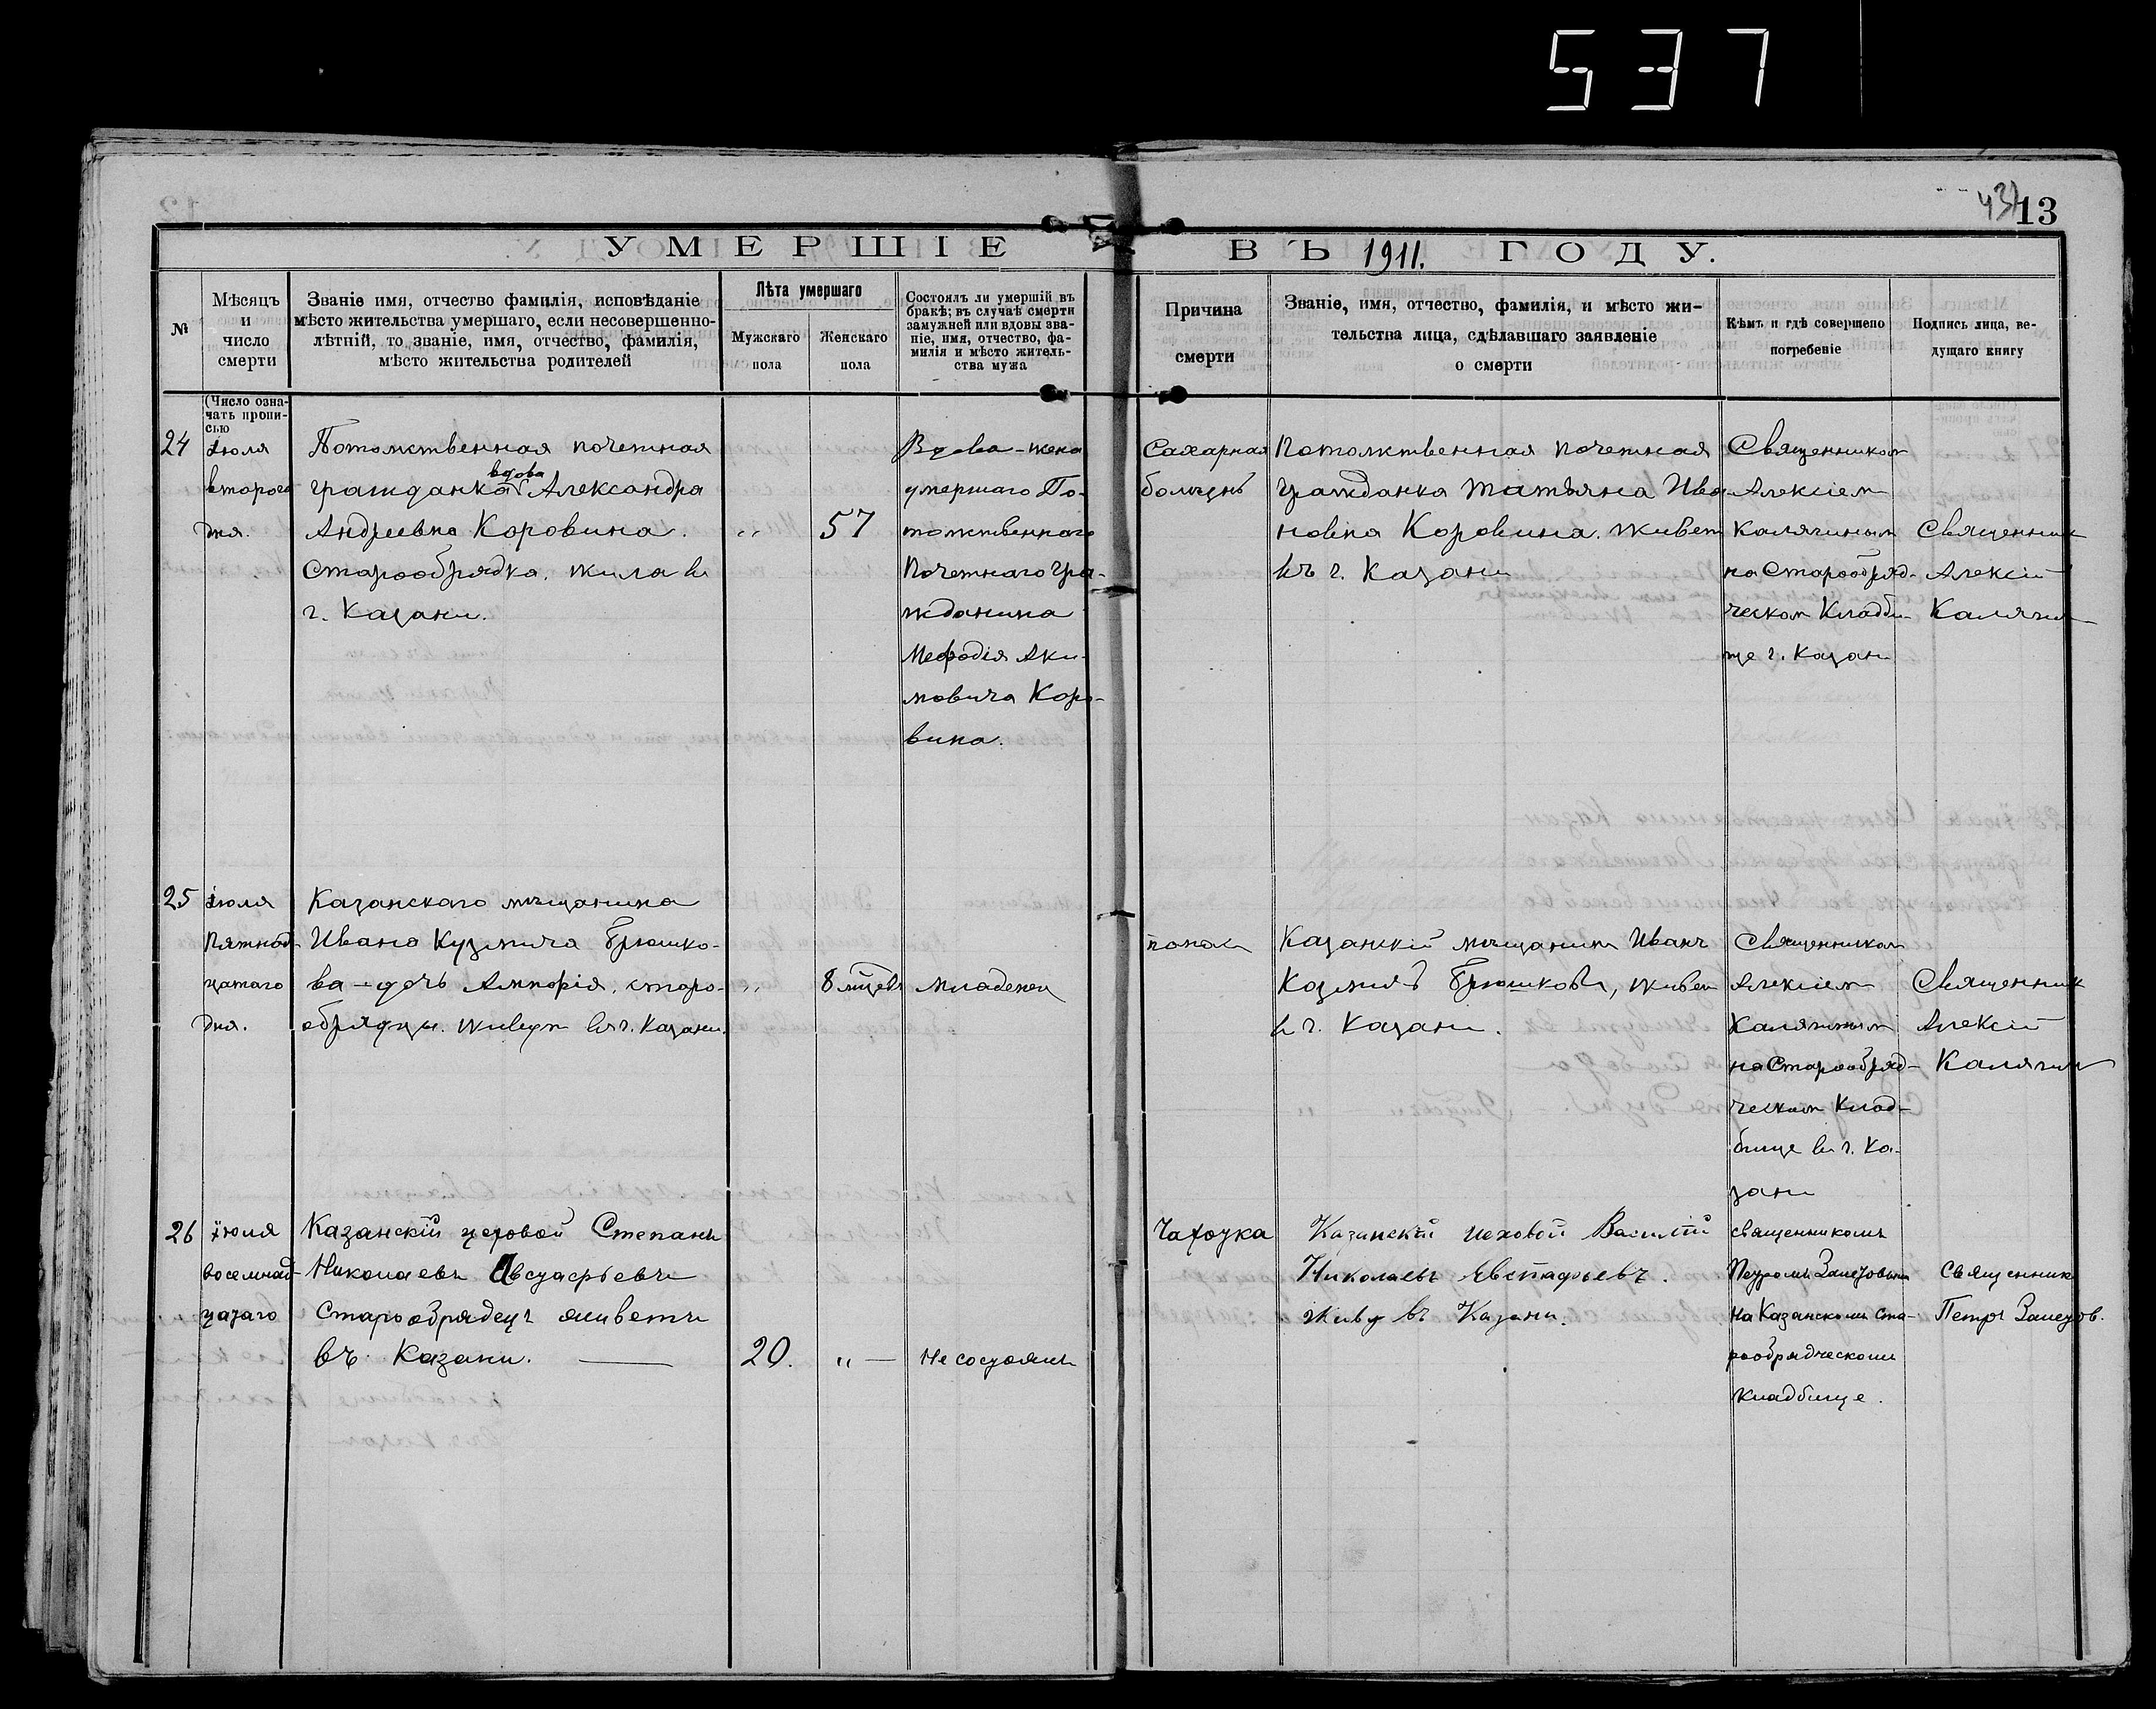 537
43
13
УМЕРШІЕ ВЪ 1911. ГОДУ.
№
Мѣсяцъ
и
число
смерти
Званіе имя, отчество фамилія, исповѣданіе
мѣсто жительства умершаго, если несовершенно-
лѣтній, то званіе, имя, отчество, фамилія,
мѣсто жительства родителей
Лѣта умершаго
Мужскаго
пола
Женскаго
пола
Состоялъ ли умершій въ
бракѣ; въ случаѣ смерти
замужней или вдовы зва-
ніе, имя, отчество, фа-
милія и мѣсто житель-
ства мужа
Причина
смерти
Званіе, имя, отчество, фамилія, и мѣсто жи-
тельства лица, сдѣлавшаго заявленіе
о смерти
Кѣмъ и гдѣ совершено
погребеніе
Подпись лица, ве-
дущаго книгу
(Число озна-
чать пропи-
сью
24
іюля
второго
дня.
Потомственная почетная
вдова
гражданка Александра
Андреевна Коровина.
Старообрядка. жила въ
г. Казани.
„
57
Вдова-жена
умершаго По-
томственнаго
Почетнаго гра-
жданина
Мефодія Аки-
мовича Коро-
вина.
Сахарная
болѣзнь
Потомственная почетная
гражданка Татьяна Ива-
новна Коровина. живет
въ г. Казани
Священником
Алексіем
Калягиным
на Старообряд-
ческом Кладби-
ще г. Казани
Священник
Алексій
Калягин
25
іюля
Пятнад-
цатаго
дня.
Казанскаго мѣщанина
Ивана Кузмича Брюшко-
ва - дочь старо-
обрядцы. живут въ г. Казани.
„
8 мѣцевъ
Младенец
понос
Казанскій мѣщанин Иванъ
Козмичъ Брюшковъ, живет
в г. Казани.
Священником
Алексіем
Калягиным
на Старообряд-
ческом Клад-
бище въ г. Ка-
зани
Священник
Алексій
Калягин
26
іюля
восемнад-
цатаго
Казанскій цеховой Степанъ
Николаевъ Австафьевъ
Старообрядецъ живетъ
въ Казани.
20.
„ —
Не состоялъ
Чахоука
Казанскій цеховой Василій
Николаевъ Евстафьевъ.
Живу въ Казани.
священникомъ
Петромъ
На Казанскомъ Ста-
рообрядческомъ
кладбище.
Священник
Петръ